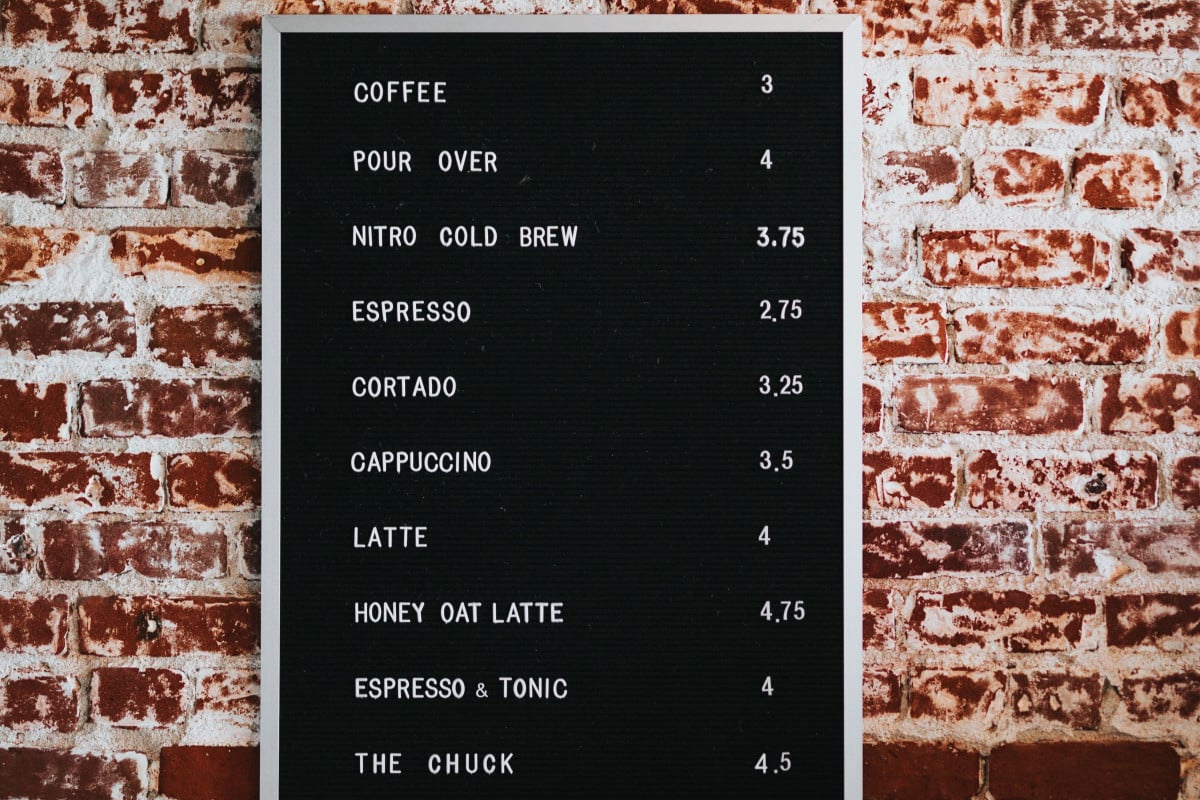 COFFEE 3
POUR OVER 4
NITRO COLD BREW 3.75
ESPRESSO 2.75
CORTADO 3.25
CAPPUCCINO 3.5
LATTE 4
HONEY OAT LATTE 4.75
ESPRESSO & TONIC 4
THE CHUCK 4.5